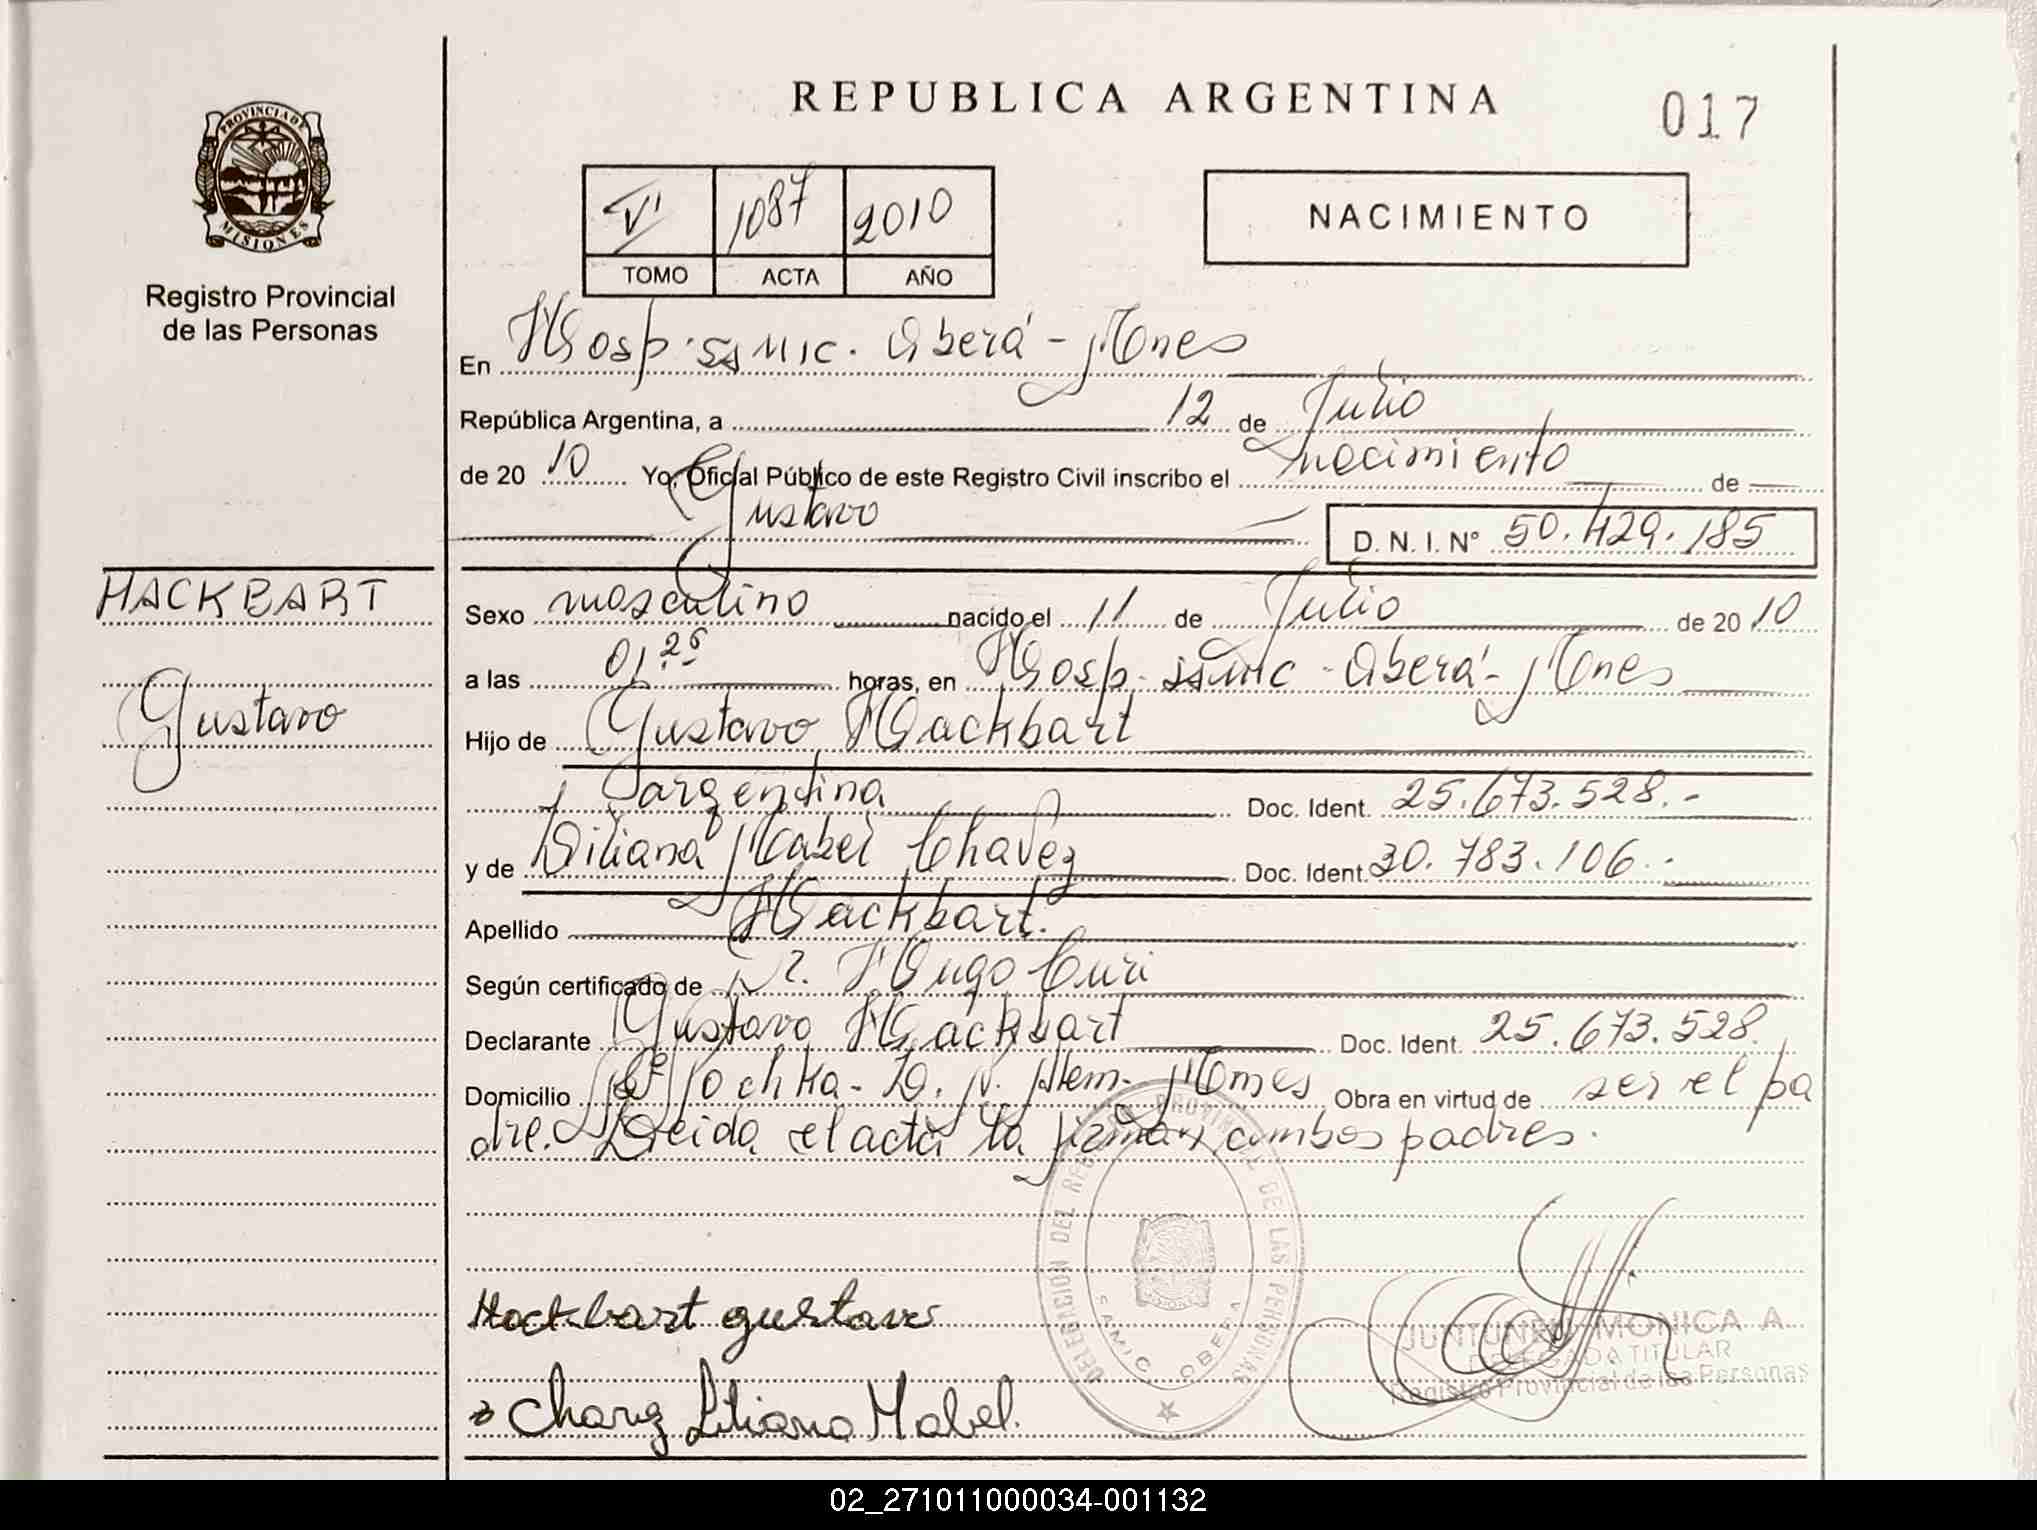 REPUBLICA ARGENTINA
017
PROVINCIA DE
MISIONES
Registro Provincial
de las Personas
VI 1087 2010
TOMO ACTA AÑO
NACIMIENTO
En Hosp. SAMIC. Oberá - Mnes
República Argentina, a 12 de Julio
de 20 10 Yo, Oficial Público de este Registro Civil inscribo el nacimiento de
Gustavo D. N. I. Nº 50.429.185
HACKBART
Gustavo
Sexo masculino nacido el 11 de Julio de 20 10
a las 01,25 horas, en Hosp. SAMIC - Oberá - Mnes
Hijo de Gustavo Hackbart
argentina Doc. Ident. 25.673.528.-
y de Liliana Mabel Chavez Doc. Ident. 30.783.106.-
Apellido Hackbart.
Según certificado de Dr. Hugo Curi
Declarante Gustavo Hackbart Doc. Ident. 25.673.528.
Domicilio L. N. Alem - Mnes Obra en virtud de ser el pa
dre. Leida el acta la firman ambos padres.
DELEGACION DEL REGISTRO PROVINCIAL DE LAS PERSONAS
SAMIC OBERA
Hackbart gustavo
Chavez Liliana Mabel.
MONICA A
DELEGADA TITULAR
Registro Provincial de las Personas
02_271011000034-001132